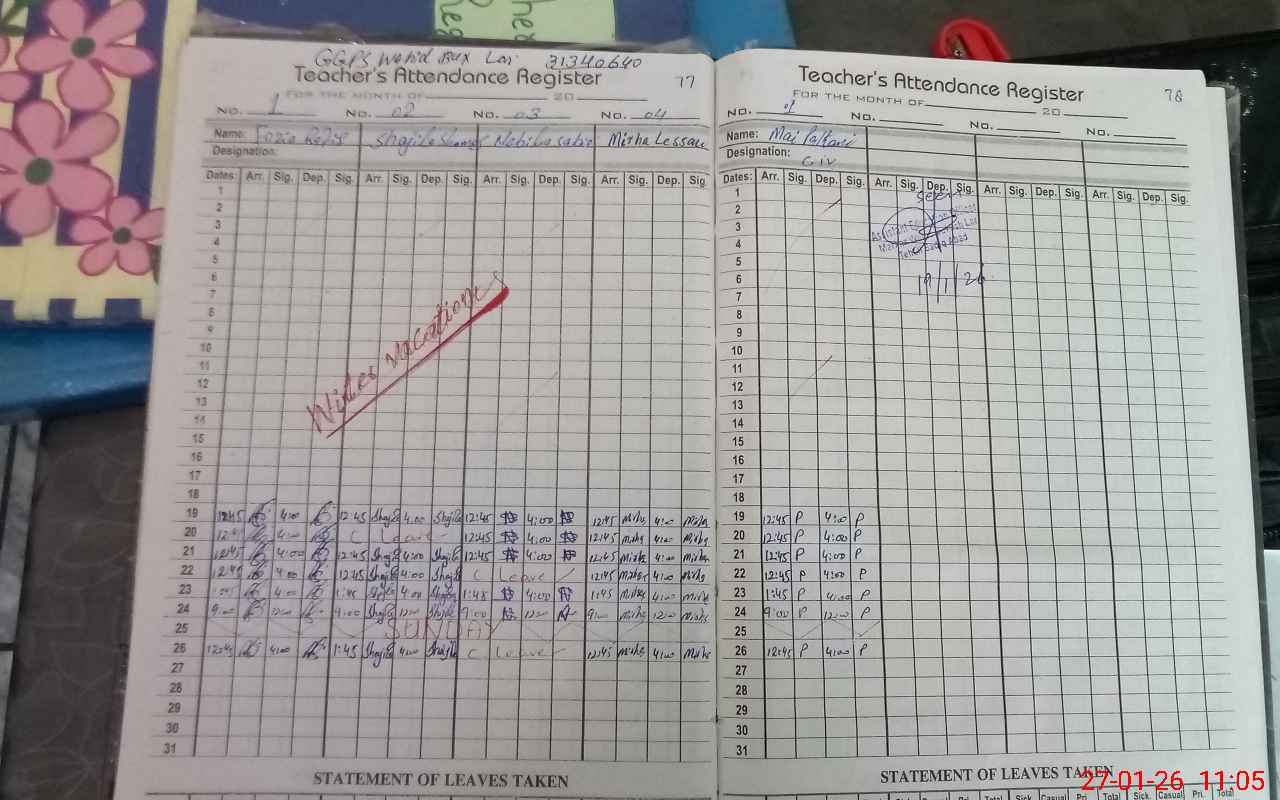 GGPS Wahid Bux Lar 31340640
Teacher's Attendance Register 77
FOR THE MONTH OF 20
No. 1 No. 02 No. 03 No. 04
Name: Shajila Nabila Misha Lessan
Designation:
Dates: Arr. Sig. Dep. Sig. Arr. Sig. Dep. Sig. Arr. Sig. Dep. Sig. Arr. Sig. Dep. Sig
1
2
3
4
5
6
7
8
9
10
11
12
13
14
15
16
17
18
Winter vacations
19 12:45 4:00 12:45 Shajila 4:00 Shajila 12:45 4:00 12:45 Misha 4:00 Misha
20 12:45 4:00 C Leave 12:45 4:00 12:45 Misha 4:00 Misha
21 12:45 4:00 12:45 Shajila 4:00 Shajila 12:45 4:00 12:45 Misha 4:00 Misha
22 12:45 4:00 12:45 Shajila 4:00 Shajila C Leave 12:45 Misha 4:00 Misha
23 1:45 4:00 1:45 Shajila 4:00 Shajila 1:45 4:00 1:45 Misha 4:00 Misha
24 9:00 12:00 9:00 Shajila 12:00 Shajila 9:00 12:00 9:00 Misha 12:00 Misha
25 SUNDAY
26 12:45 4:00 1:45 Shajila 4:00 Shajila C Leave 12:45 Misha 4:00 Misha
27
28
29
30
31
STATEMENT OF LEAVES TAKEN
Teacher's Attendance Register 78
FOR THE MONTH OF 20
No. 01 No. No. No.
Name: Mai
Designation: C iv
Dates: Arr. Sig. Dep. Sig. Arr. Sig. Dep. Sig. Arr. Sig. Dep. Sig. Arr. Sig. Dep. Sig.
1 Seen
2
3
4
5
6 19/1/26
7
8
9
10
11
12
13
14
15
16
17
18
19 12:45 P 4:00 P
20 12:45 P 4:00 P
21 12:45 P 4:00 P
22 12:45 P 4:00 P
23 1:45 P 4:00 P
24 9:00 P 12:00 P
25
26 12:45 P 4:00 P
27
28
29
30
31
STATEMENT OF LEAVES TAKEN
27-01-26 11:05
Total Sick. Casual Pri. Total Sick. Casual Pri. Total